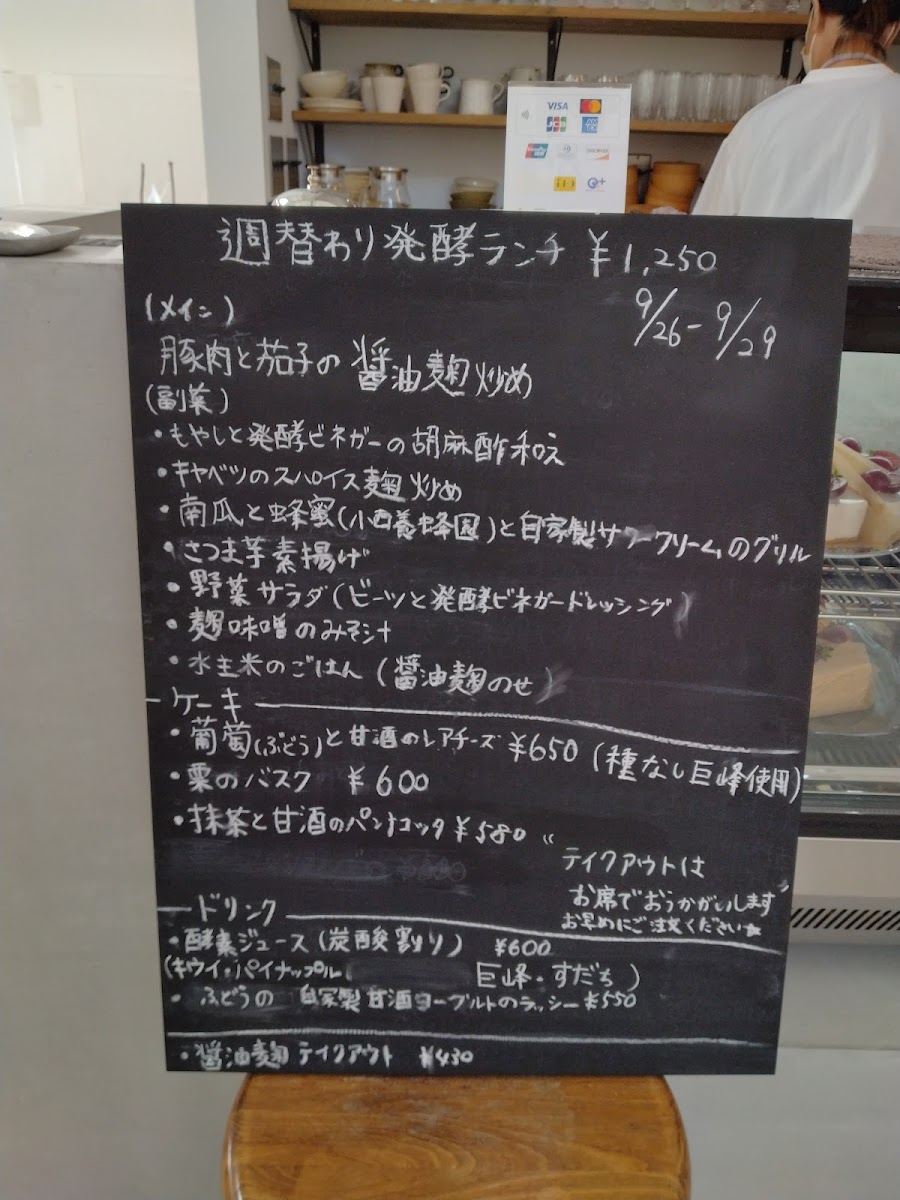 VISA
JCB
週替わり発酵ランチ ¥1,250
9/26-9/29
(メイン)
豚肉と茄子の醤油麹炒め
(副菜)
・もやしと発酵ビネガーの胡麻酢和え
・キャベツのスパイス麹炒め
・南瓜と蜂蜜(小西養蜂園)と自家製サワークリームのグリル
・さつま芋素揚げ
・野菜サラダ(ビーツと発酵ビネガードレッシング)
・麹味噌のみそ汁
・水主米のごはん(醤油麹のせ)
ケーキ
・葡萄(ぶどう)と甘酒のレアチーズ ¥650(種なし巨峰使用)
・栗のバスク ¥600
・抹茶と甘酒のパンナコッタ ¥580
テイクアウトは
お席でおうかがいします
お早めにご注文ください☆
ドリンク
・酵素ジュース(炭酸割り) ¥600
(キウイ・パイナップル 巨峰・すだち)
・ぶどうの 自家製甘酒ヨーグルトのラッシー ¥550
・醤油麹テイクアウト ¥430